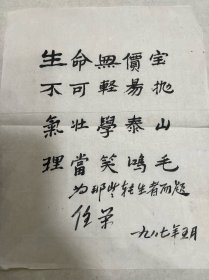 生命無價宝
不可輕易抛
氣壯學泰山
理當笑鳴毛
为那些轻生者而题
任荣
一九八七年五月